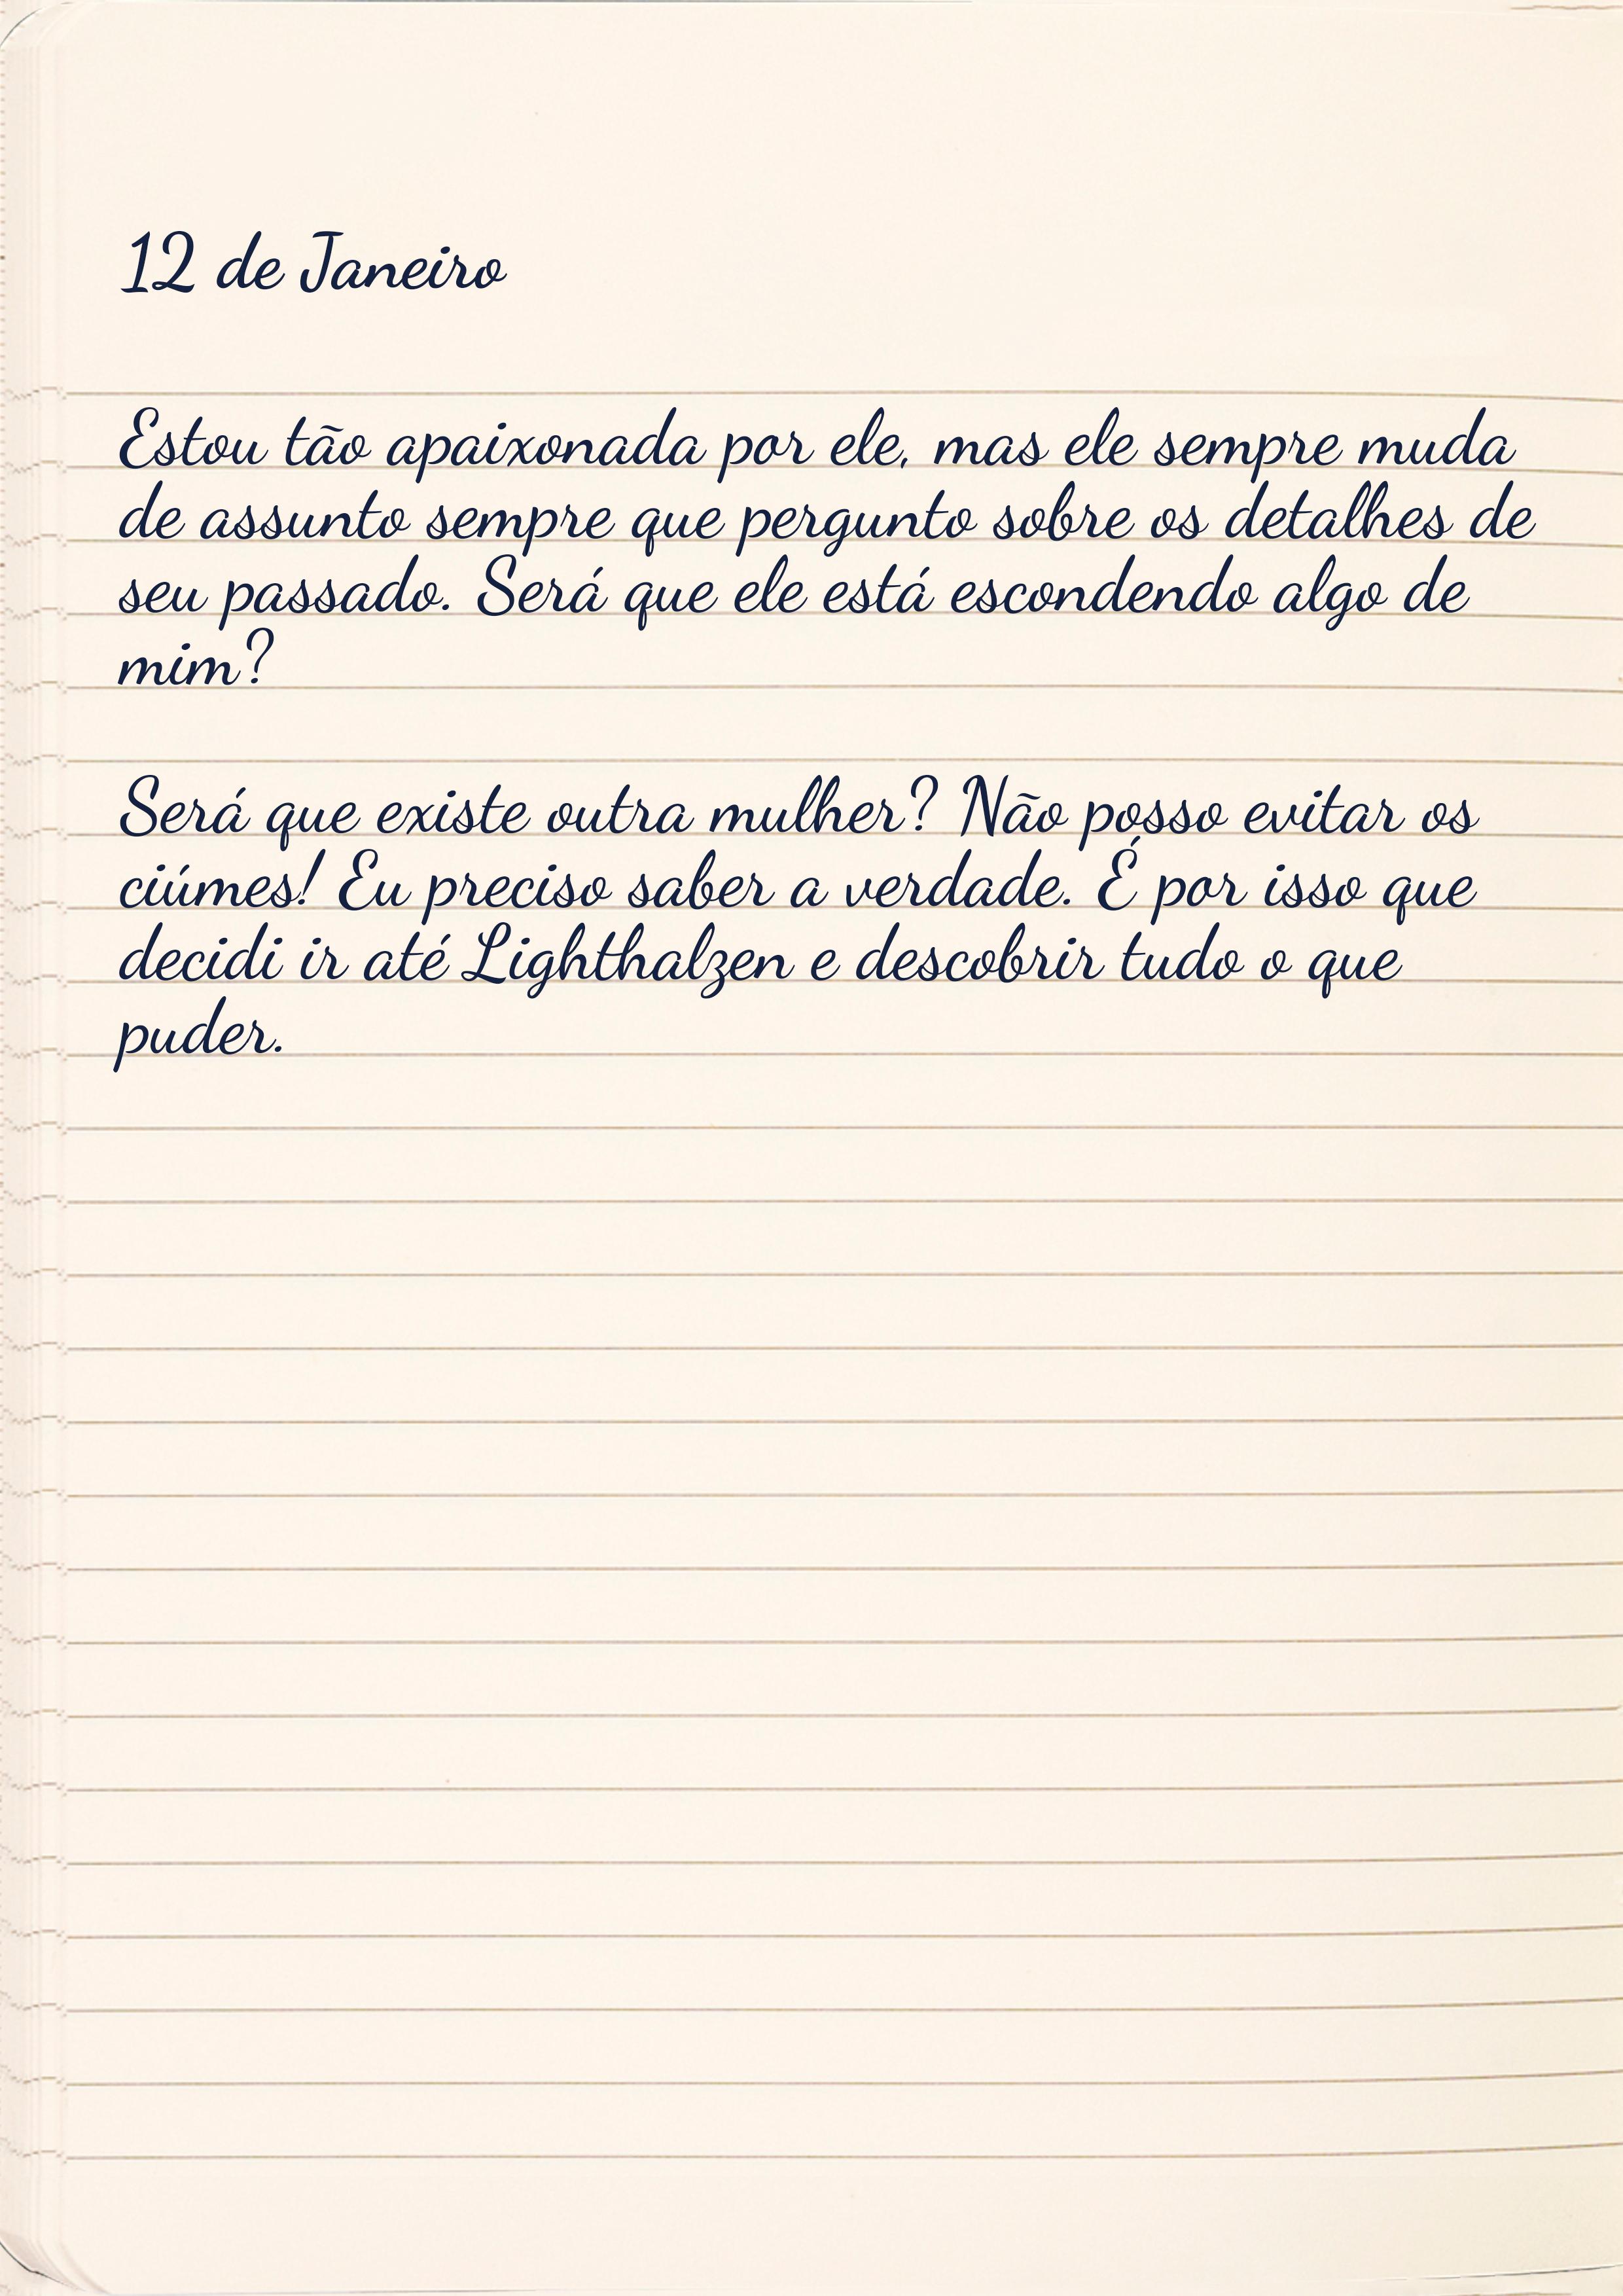 12 de Janeiro
Estou tão apaixonada por ele, mas ele sempre muda
de assunto sempre que pergunto sobre os detalhes de
seu passado. Será que ele está escondendo algo de
mim?
Será que existe outra mulher? Não posso evitar os
ciúmes! Eu preciso saber a verdade. É por isso que
decidi ir até Lighthalzen e descobrir tudo o que
puder.